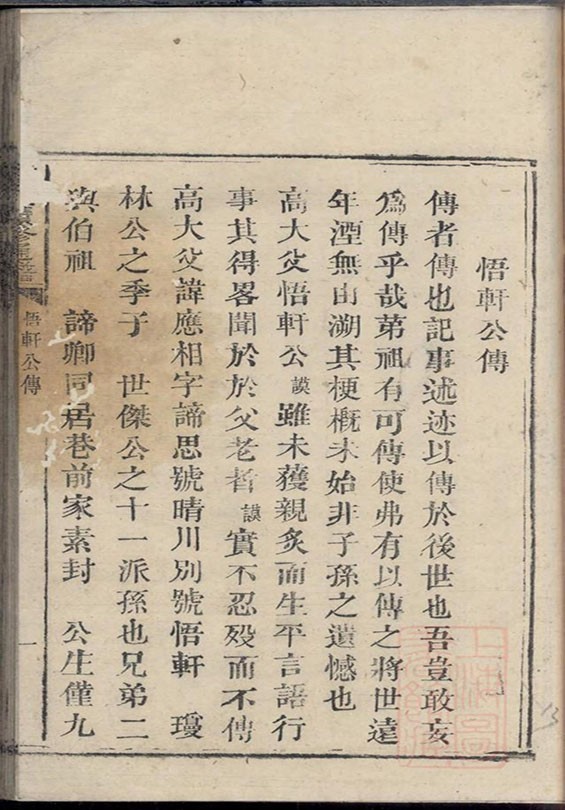 悟軒公傳
傳者傳也記事述迹以傳於後世也吾豈敢妄
爲傳乎哉苐祖有可傳使弗有以傳之將世遠
年湮無由溯其梗概未始非子孫之遺憾也
高大父悟軒公謨雖未獲親炙而生平言語行
事其得畧聞於於父老者謨實不忍殁而不傳
高大父諱應相字諦思號晴川別號悟軒 瓊
林公之季子 世傑公之十一派孫也兄弟二
與伯祖 諦卿同居巷前家素封 公生僅九
修
譜
悟軒公傳
一
上海圖
13